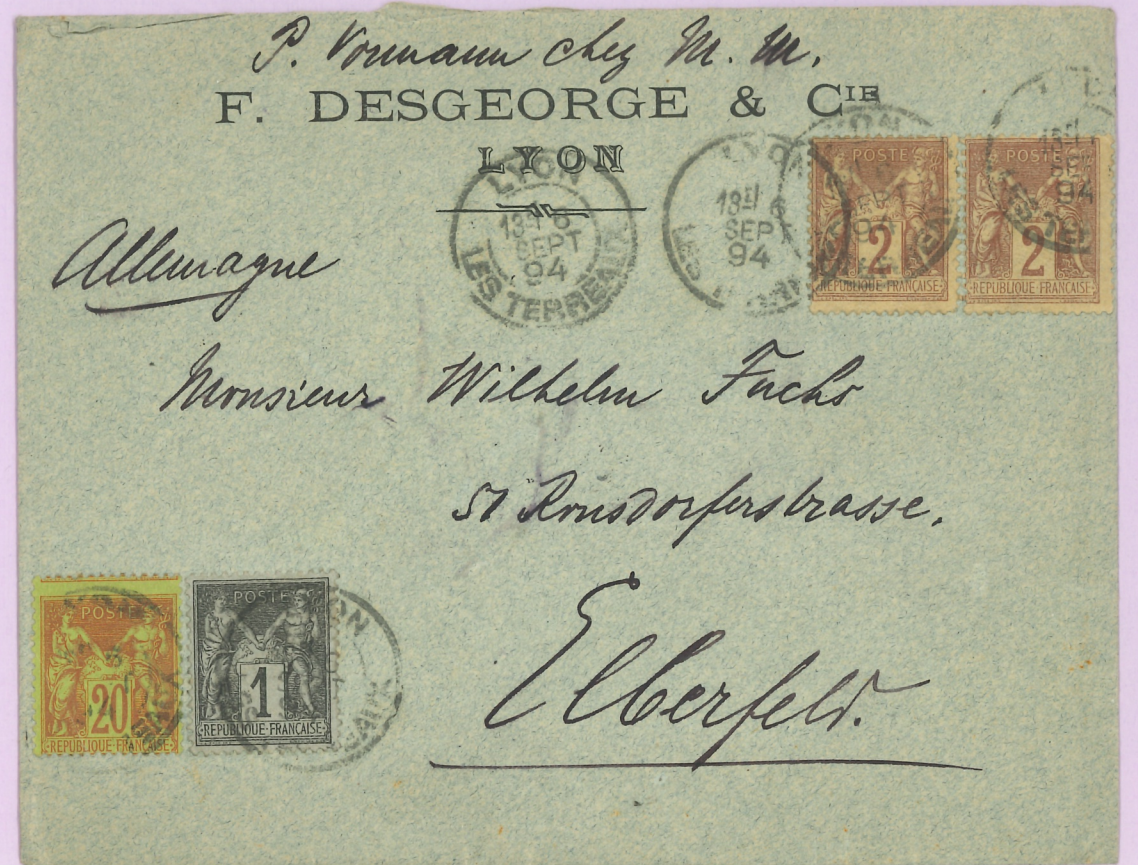 P. Vormann chez M. M.
F. DESGEORGE & CIE
LYON
LYON
13E 6
SEPT
94
LES TERREAUX
LYON
13E 6
SEPT
94
LES
LYON
94
13E
SEPT
94
LES TER
POSTES
2
REPUBLIQUE FRANÇAISE
POSTES
2
REPUBLIQUE FRANÇAISE
Allemagne
Monsieur Wilhelm Fuchs
51 Ronsdorferstrasse.
Elberfeld.
POSTES
20
REPUBLIQUE FRANÇAISE
POSTES
1
REPUBLIQUE FRANÇAISE
LYON